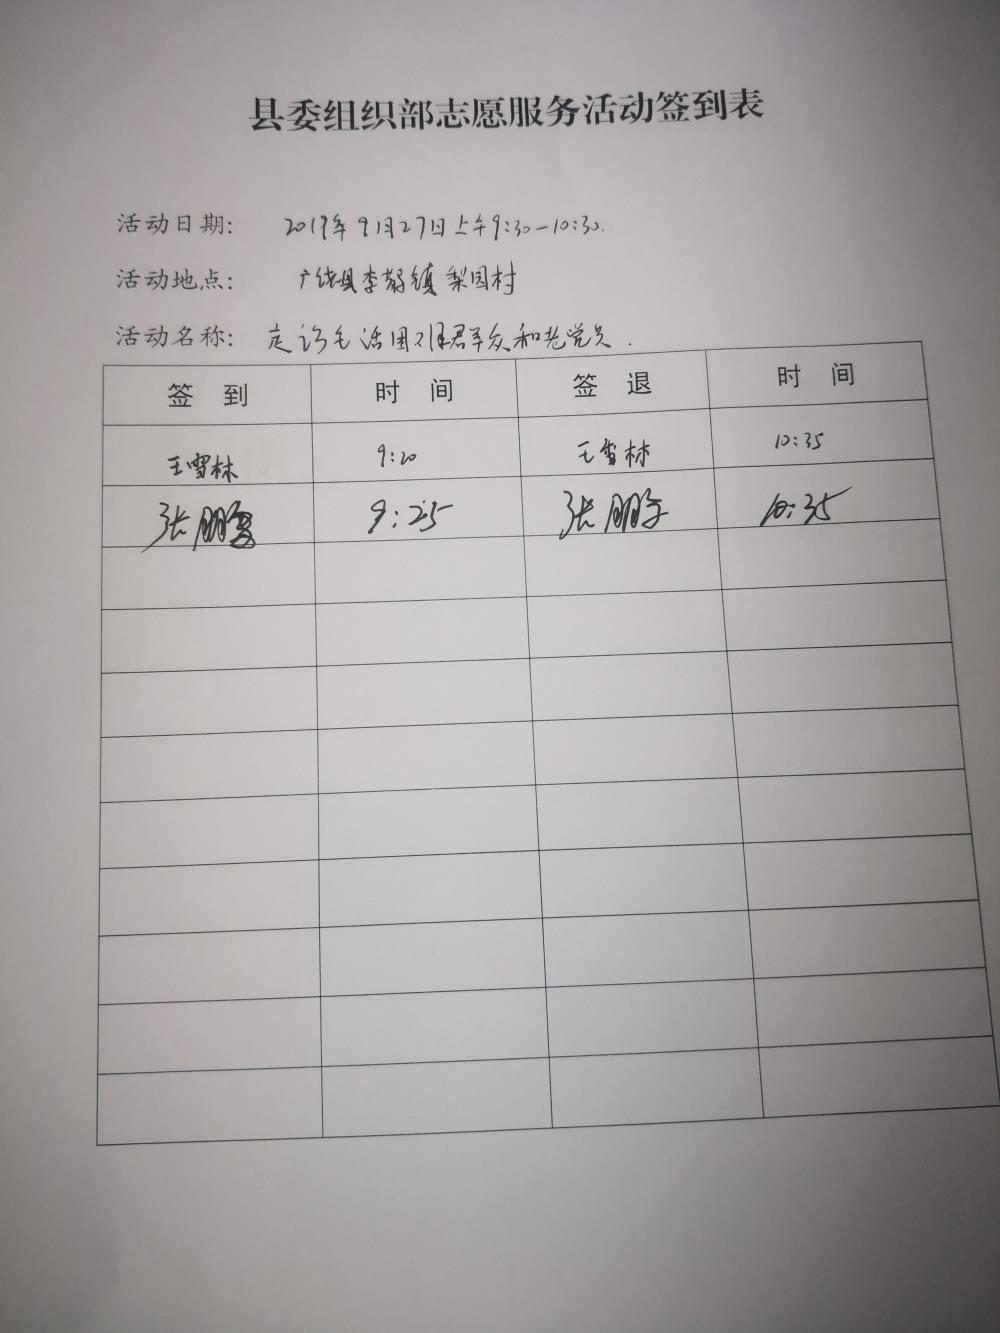 县委组织部志愿服务活动签到表
活动日期: 2019年9月27日上午9:30—10:30.
活动地点: 广饶县李鹊镇梨园村
活动名称: 走访生活困难群众和老党员.
签 到 时 间 签 退 时 间
王雪林 9:20 王雪林 10:35
张鹏 9:25 张鹏 10:35